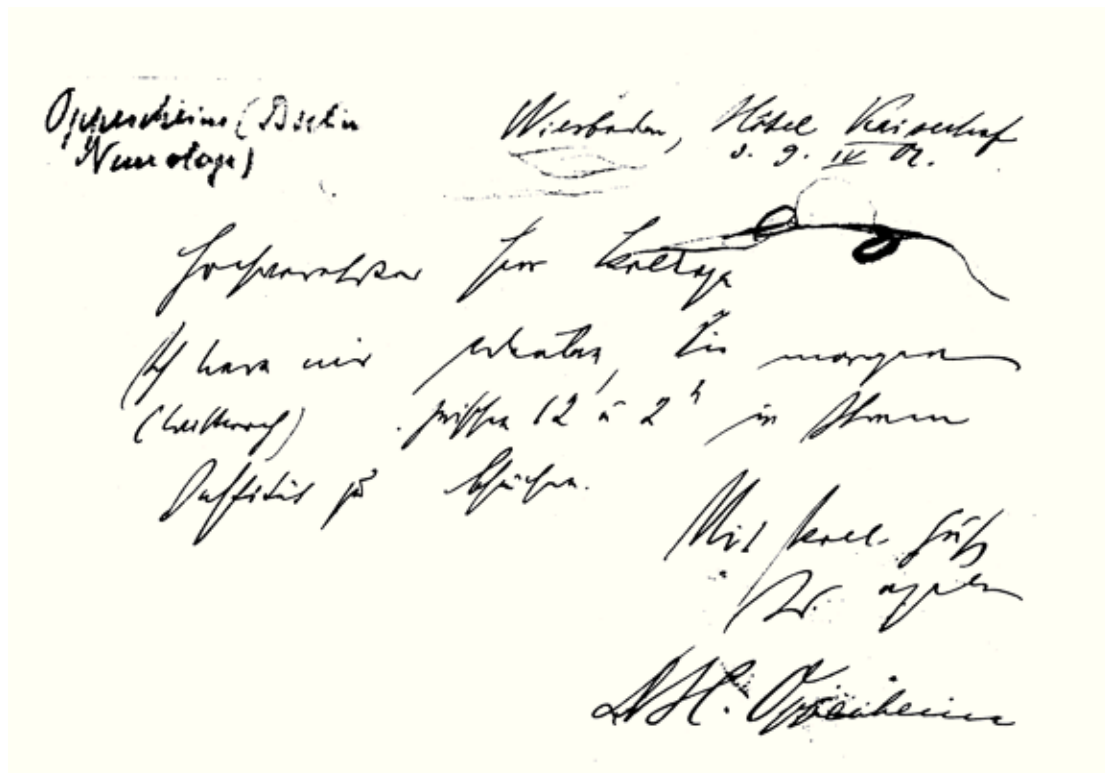 Oppenheim (Berlin
Neurologe)
Wiesbaden, Hôtel Kaiserhof
d. 9. IV 01.
Hochverehrter Herr College
Ich habe mir erlaubt, Sie morgen
(Mittwoch) zwischen 12 u 2 h in Ihrem
Institut zu besuchen.
Mit koll. Gruß
Ihr ergeben
Dr H. Oppenheim